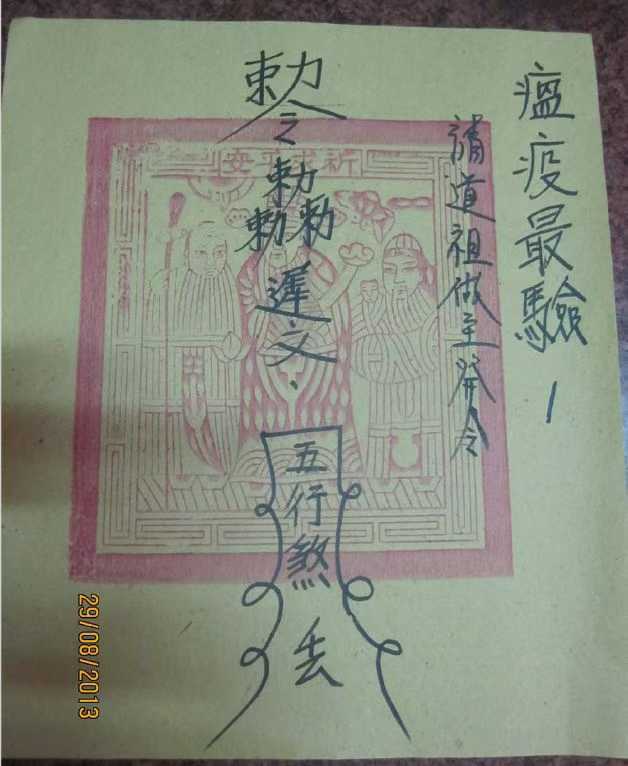 瘟疫最驗
請道祖做主發令
祈求平安
勅令
勅勅勅
遲文、
五行煞
丢
29/08/2013